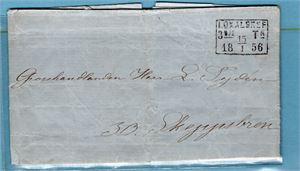 LOKALBREF
15
18 1 56
Grosshandlanden Herr L. Lydén
3B. Skeppsbron